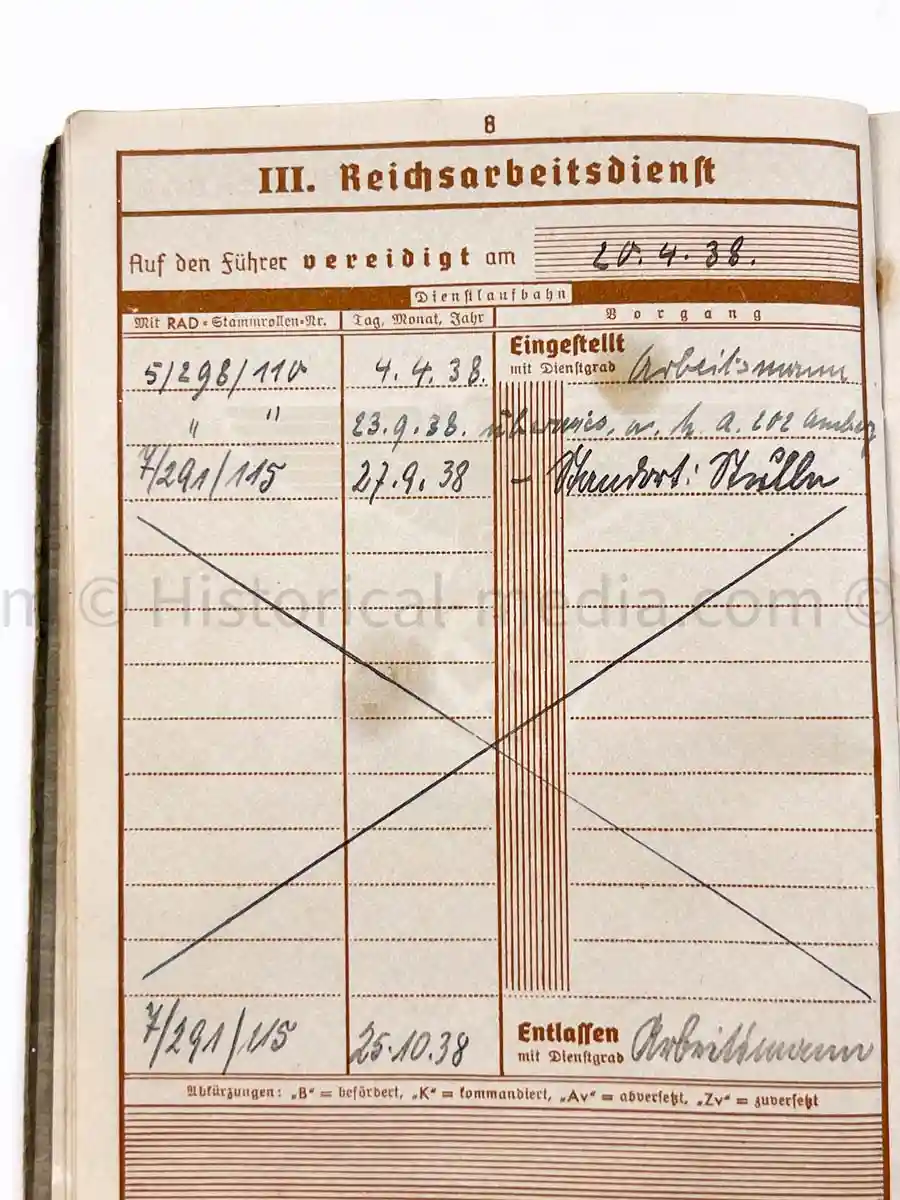 8
III. Reichsarbeitsdienst
Auf den Führer vereidigt am 20.4.38.
Dienstlaufbahn
Mit RAD-Stammrollen-Nr. Tag, Monat, Jahr Vorgang
Eingestellt
5/298/110 4.4.38. mit Dienstgrad Arbeitsmann
" " 23.9.38. überwies. A. 202 Amberg
7/291/115 27.9.38 - Standort: Stulln
m © Historical-media.com ©
7/291/115 25.10.38 Entlassen Arbeitsmann
mit Dienstgrad
Abkürzungen: „B“ = befördert, „K“ = kommandiert, „Av“ = abversetzt, „Zv“ = zuversetzt